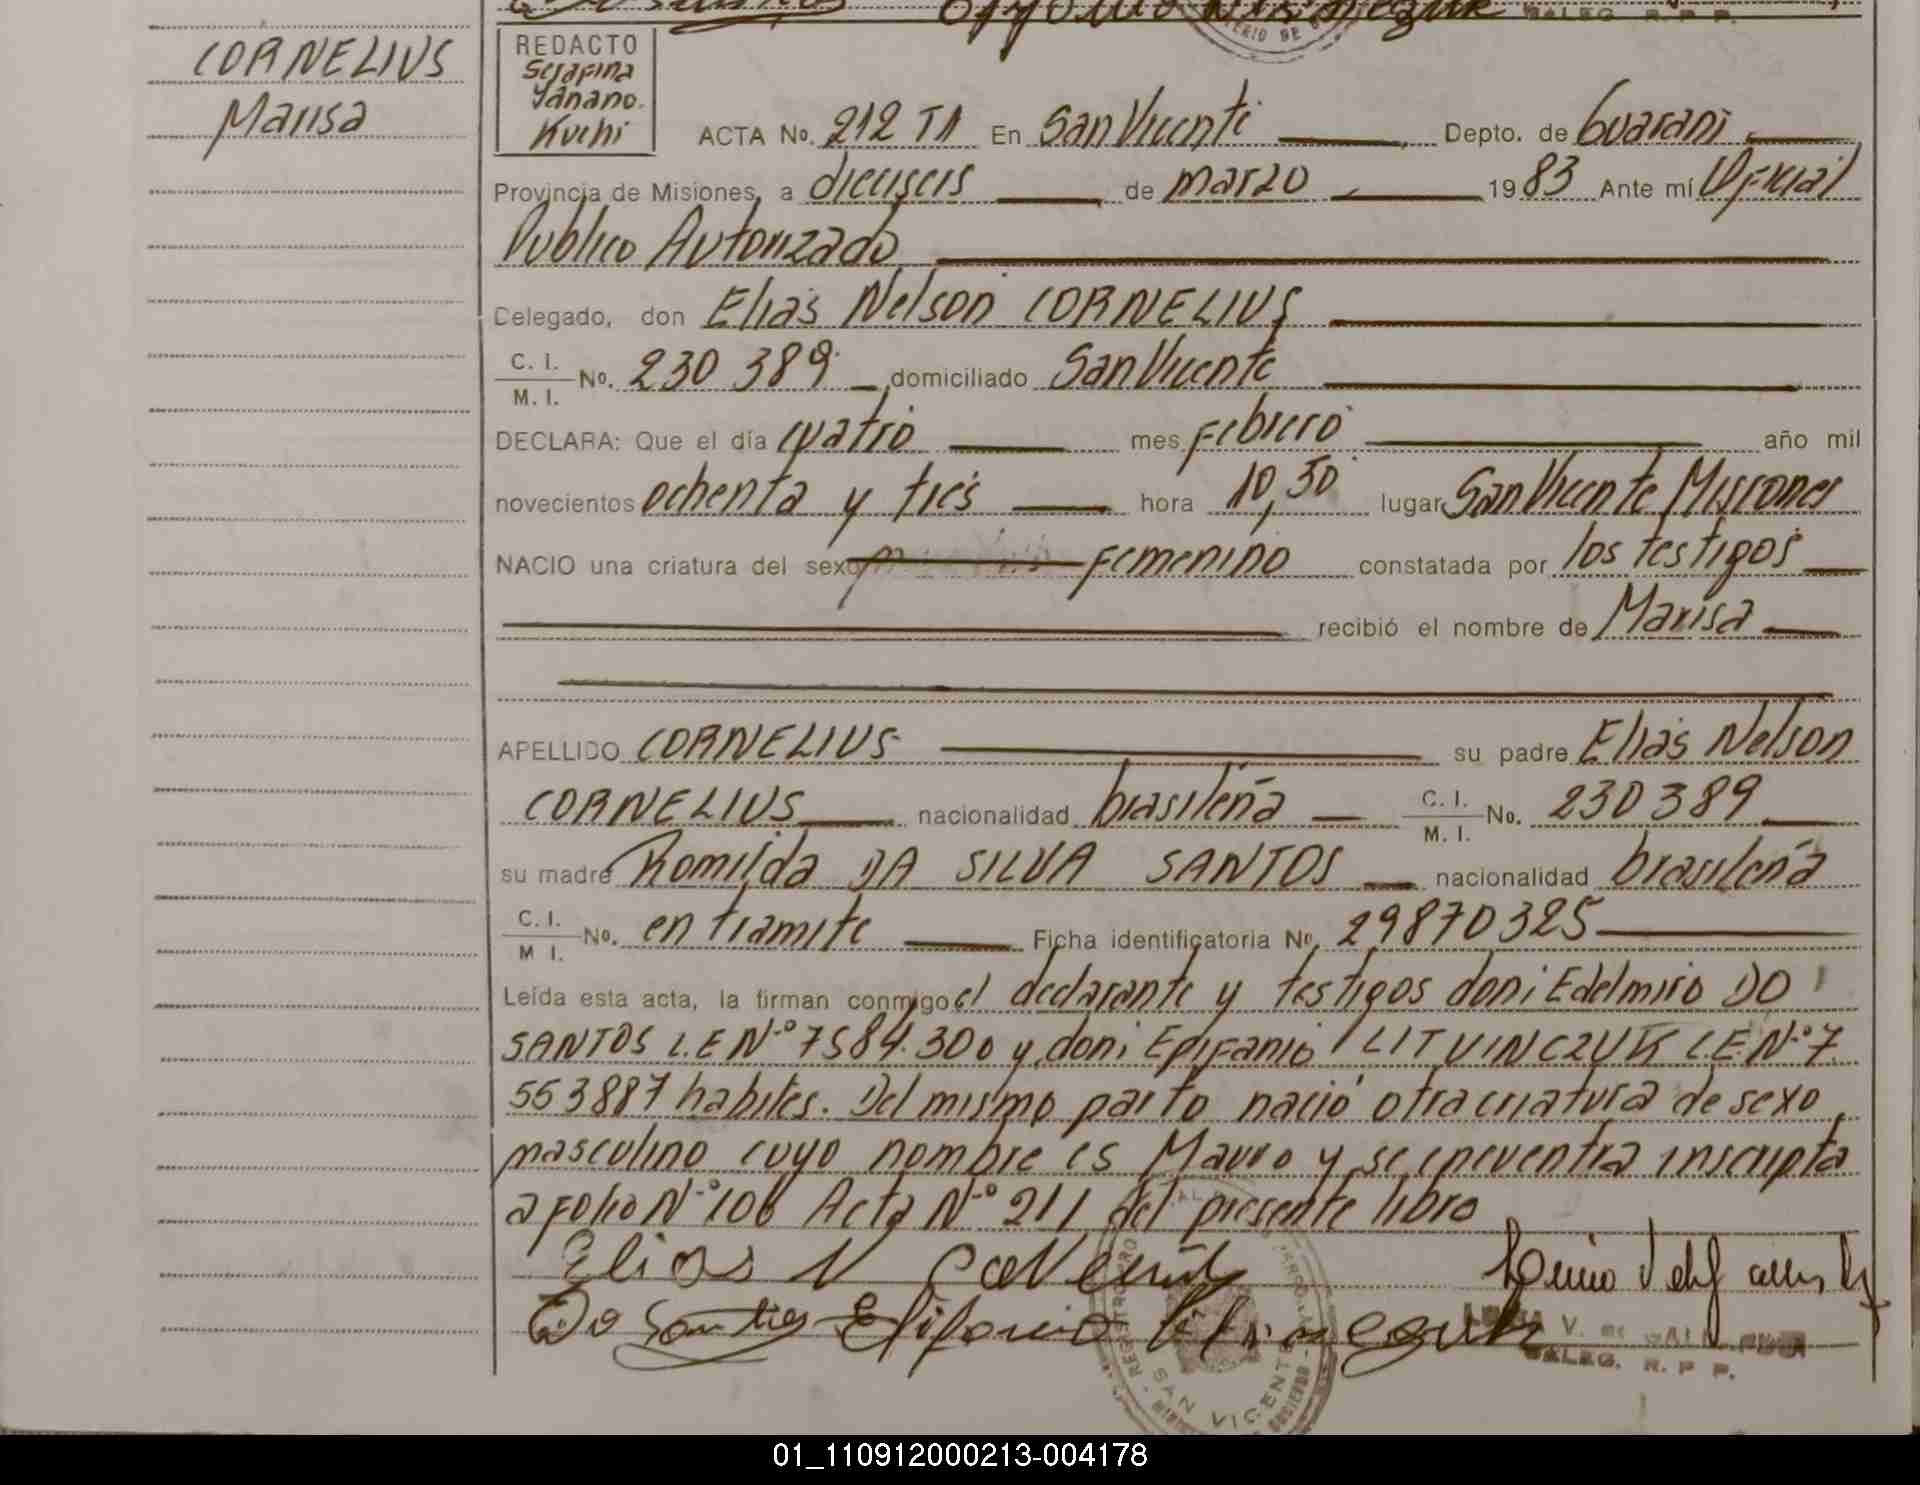 CORNELIUS
Marisa
REDACTO
Serafina
Yanano.
Kuchi
ACTA No. 212 TA En San Vicente Depto. de Guaraní
Provincia de Misiones, a dieciseis de marzo 1983 Ante mí Oficial
Publico Autorizado
Delegado, don Elias Nelson CORNELIUS
C. I.
M. I. No. 230 389 domiciliado San Vicente
DECLARA: Que el día cuatro mes febrero año mil
novecientos ochenta y tres hora 10,30 lugar San Vicente Misiones
NACIO una criatura del sexo femenino constatada por los testigos
recibió el nombre de Marisa
APELLIDO CORNELIUS su padre Elias Nelson
CORNELIUS nacionalidad brasileña C. I. M. I. No. 230389
su madre Romilda DA SILVA SANTOS nacionalidad brasileña
C. I. M I. No. en tramite Ficha identificatoria No. 29870325
Leída esta acta, la firman conmigo el declarante y testigos don: Edelmiro DO
SANTOS L.E N-º 7584.300 y don: Epifanio LITVINCZUK L.E. N-º 7.
553887 habiles. Del mismo parto nació otra criatura de sexo
masculino cuyo nombre es Mauro y se encuentra inscripta
a folio N-º 106 Acta N-º 211 del presente libro
Elias N
Do Santos Epifanio
SAN VICENTE
R. P. P.
01_110912000213-004178